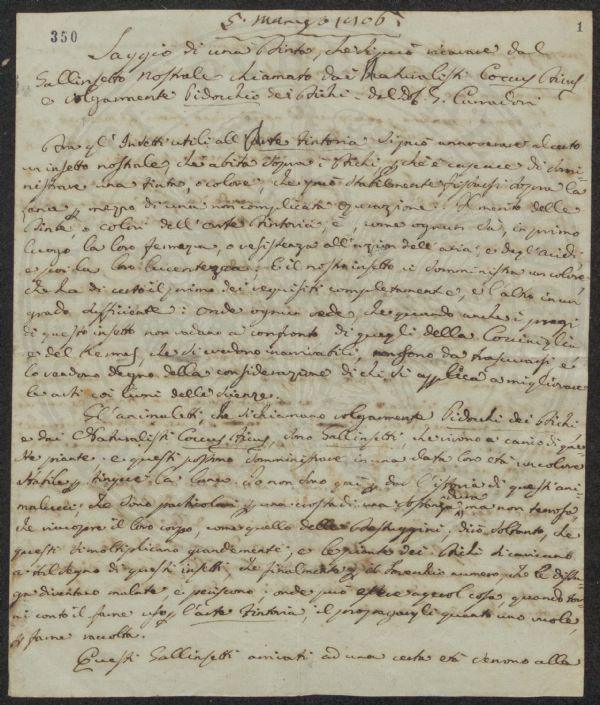 350
1
5. Marzo 1806.
Saggio di una Tinta, che si può ricavare dal
Gallinsetto nostrale chiamato dai Naturalisti Coccus Ficus
e volgarmente Pidocchio dei Fichi - del D. G. Carradori
Fra gl' Insetti utili all'Arte tintoria si può annoverare al certo
un insetto nostrale, che abita sopra i Fichi, che è capace di som̄i
nistrare una tinta, o colore, che può stabilmente fissarsi sopra la
Lana p mezzo di una non complicata operazione. Il merito delle
Tinte, o colori dell'arte tintoria, è, come ognun sà, in primo
luogo la loro fermezza, o resistenza all'azion dell'aria, e degl'acidi
e poi la loro lucentezza; E il nostro insetto ci somministra un colore
che ha di certo il primo dei requisiti completamente, e l'altro in un
grado sufficiente: onde ognun vede, che quando anche i pregi
di questo insetto non vadano a confronto di quegli della Cocciniglia
e del Kermes, che si vedono inarrivabili, non sono da trascurarsi e
lo rendono degno della considerazione di chi si applica a migliorare
le arti coi lumi delle scienze.
Gl'animaletti, che si chiamano volgarmente Pidocchi dei Fichi
e dai Naturalisti Coccus Ficus, sono Gallinsetti, che vivono a carico di ques
te piante, e questi possono somministrare in una data loro età un colore
stabile p tingere la lana. Io non sono qui p dar l'istoria di questi ani
malucci, che sono particolari p una crosta di una sostanza dura, ma non
che ricuopre il loro corpo, come quello delle Testuggini, dirò soltanto, che
questi si moltiplicano grandemente, e le piante dei Fichi si caricano
a tal segno di questi insetti, che finalmente p il numero
diventano malate, e periscono, onde può esser agevol cosa, quando tor
ni conto il farne uso p l'arte Tintoria, il propagargli quanto uno vuole,
p farne raccolta.
Questi Gallinsetti arrivati ad una certa età vicino alla